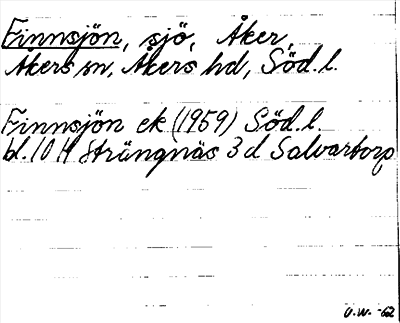 Finnsjön, sjö, Åker,
Åkers sn, Åkers hd, Söd.l.
Finnsjön ek (1959) Söd.l.
bl. 10 H Strängnäs 3 d Salvartorp
O.W. -62